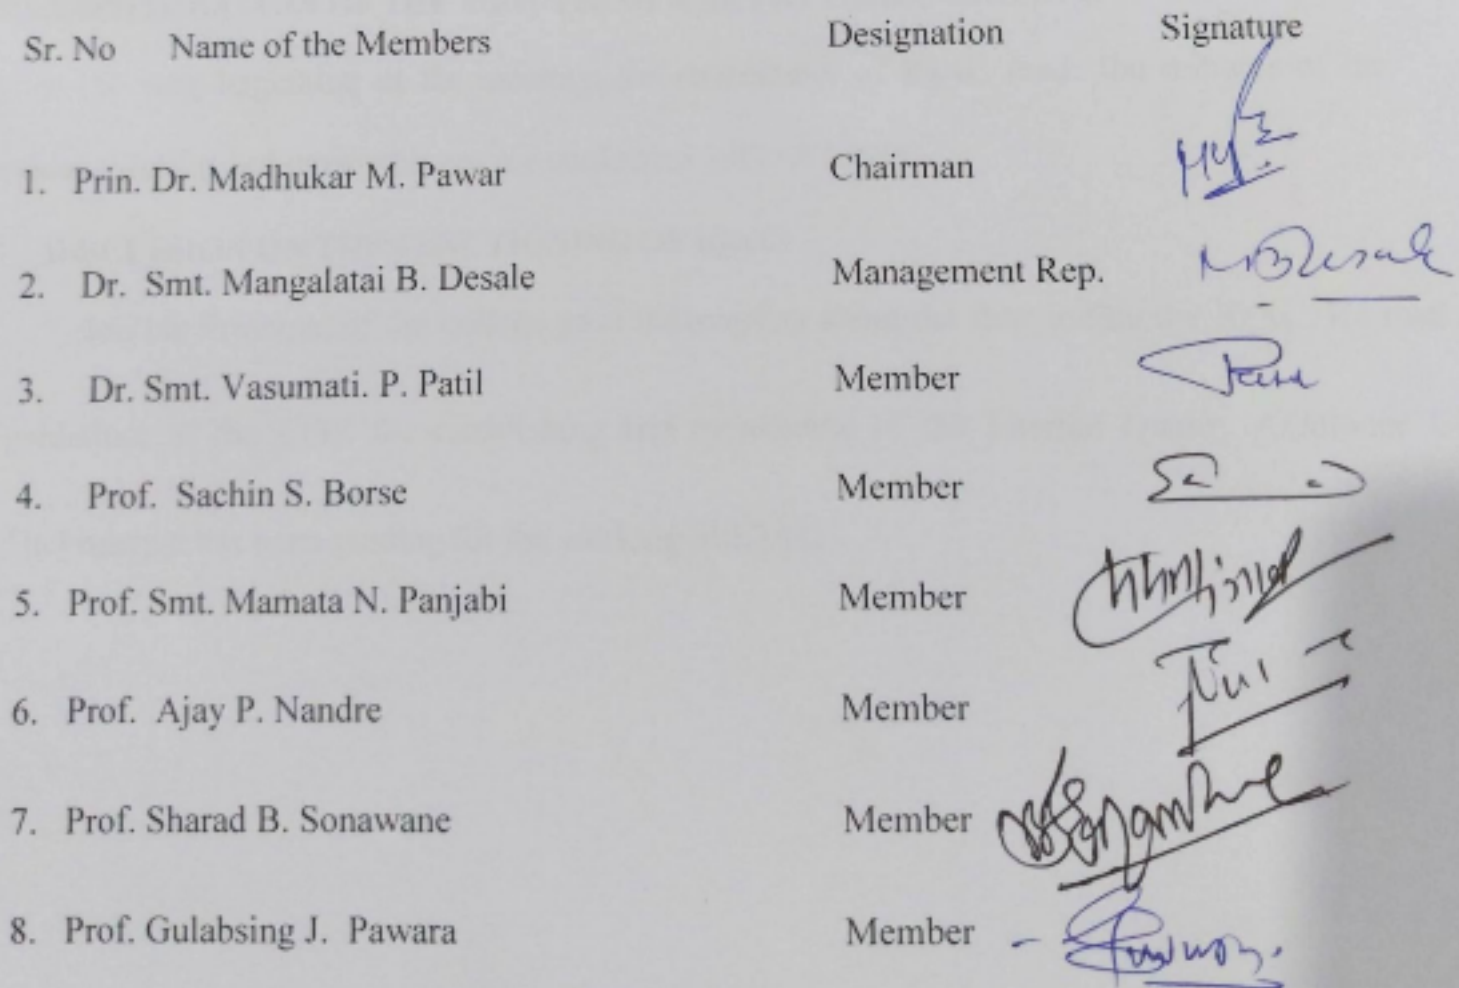 Sr. No Name of the Members Designation Signature
1. Prin. Dr. Madhukar M. Pawar Chairman
2. Dr. Smt. Mangalatai B. Desale Management Rep. MBDesale
3. Dr. Smt. Vasumati. P. Patil Member
4. Prof. Sachin S. Borse Member
5. Prof. Smt. Mamata N. Panjabi Member
6. Prof. Ajay P. Nandre Member
7. Prof. Sharad B. Sonawane Member
8. Prof. Gulabsing J. Pawara Member